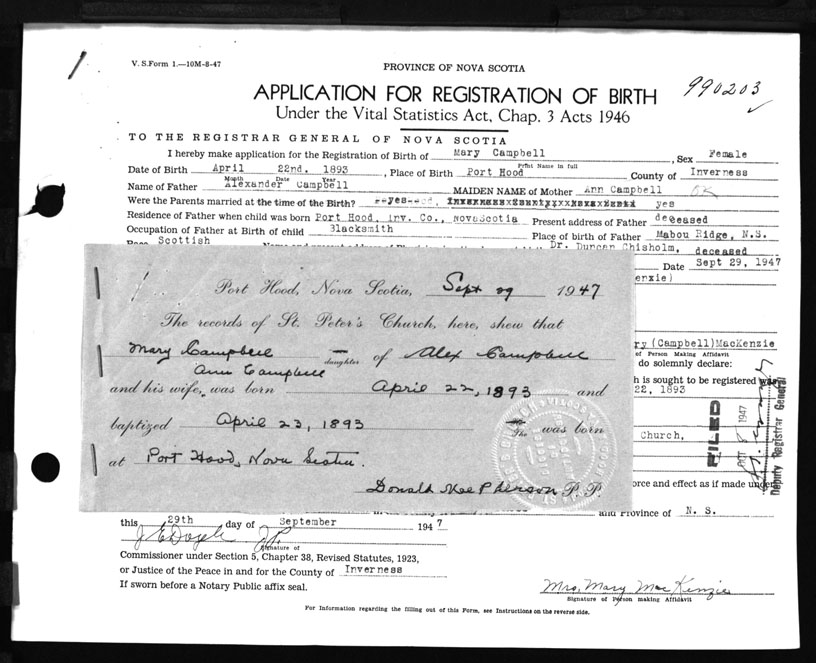 V. S. Form 1.—10M-8-47
PROVINCE OF NOVA SCOTIA
990203
APPLICATION FOR REGISTRATION OF BIRTH
Under the Vital Statistics Act, Chap. 3 Acts 1946
TO THE REGISTRAR GENERAL OF NOVA SCOTIA
I hereby make application for the Registration of Birth of Mary Campbell, Sex Female
Print Name in full
Date of Birth April 22nd. 1893, Place of Birth Port Hood County of Inverness
Month Date Year
Name of Father Alexander Campbell MAIDEN NAME of Mother Ann Campbell OK
Were the Parents married at the time of the Birth? yes
Residence of Father when child was born Port Hood, Inv. Co., NovaScotia Present address of Father deceased
Occupation of Father at Birth of child Blacksmith Place of birth of Father Mabou Ridge, N.S.
Race Scottish Dr. Duncan Chisholm, deceased
Date Sept 29, 1947
enzie)
Port Hood, Nova Scotia, Sept 29 1947
The records of St. Peter's Church, here, shew that
Mary Campbell daughter of Alex Campbell
Ann Campbell
and his wife, was born April 22, 1893 and
baptized April 23, 1893 was born
at Port Hood, Nova Scotia.
Donald MacPherson P.P.
ry (Campbell) MacKenzie
of Person Making Affidavit
do solemnly declare:
h is sought to be registered was
22, 1893
Church,
FILED
OCT 8 1947
Deputy Registrar General
orce and effect as if made under
and Province of N. S.
this 29th day of September 1947
Signature of
Commissioner under Section 5, Chapter 38, Revised Statutes, 1923,
or Justice of the Peace in and for the County of Inverness
If sworn before a Notary Public affix seal.
Mrs. Mary MacKenzie
Signature of Person making Affidavit
For Information regarding the filling out of this Form, see Instructions on the reverse side.